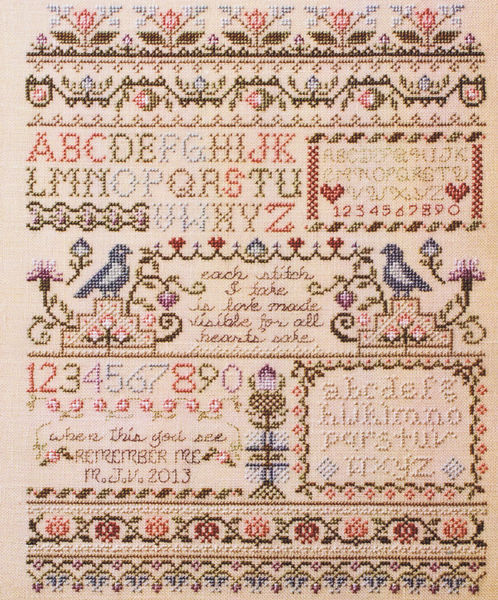 ABCDEFGHIJK
LMNOPQRSTU
VWXYZ
ABCDEFGHIJK
LMNOPQRSTU
VWXYZ
1234567890
each stitch
I take
is love made
visible for all
hearts sake
1234567890
when this you see
REMEMBER ME
M.J.V. 2013
abcdefg
hijklmno
pqrstuv
wxyz